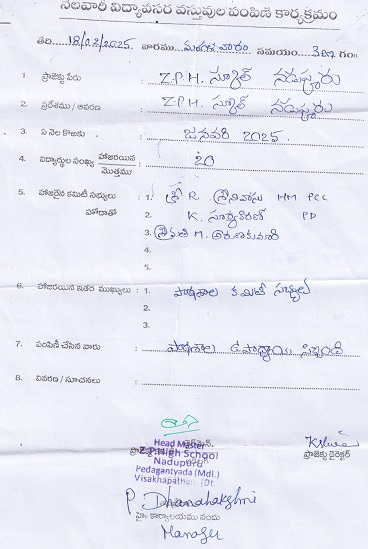 నెలవారీ విద్యావసర వస్తువుల పంపిణీ కార్యక్రమం
తేది. 18/02/2025. వారము మంగళవారం సమయం 3.00 గం॥
1. ప్రాజెక్టు పేరు : Z.P.H. స్కూల్ నడుపూరు
2. ప్రదేశము / ఆవరణ : Z.P.H. స్కూల్ నడుపూరు
3. ఏ నెల కొఱకు : జనవరి 2025.
4. విద్యార్థుల సంఖ్య హాజరయిన / మొత్తము : 20
5. హాజరైన కమిటీ సభ్యులు : 1. శ్రీ R. శ్రీనివాసు HM PCC
హోదాతో 2. K. సూర్యకిరణ్ PD
3. శ్రీమతి M. అరుణకుమారి
4.
5.
6. హాజరయిన ఇతర ముఖ్యులు : 1. పాఠశాల కమిటీ సభ్యులు
2.
3.
7. పంపిణీ చేసిన వారు : పాఠశాల ఉపాధ్యాయ సిబ్బంది
8. వివరణ / సూచనలు :
Head Master
Z.P.High School
Nadupuru
Pedagantyada (Mdl.)
Visakhapatnam Dt.
ప్రాజెక్టు డైరెక్టర్
P. Dhanalakshmi
హెడ్ కార్యాలయము నందు
Manager